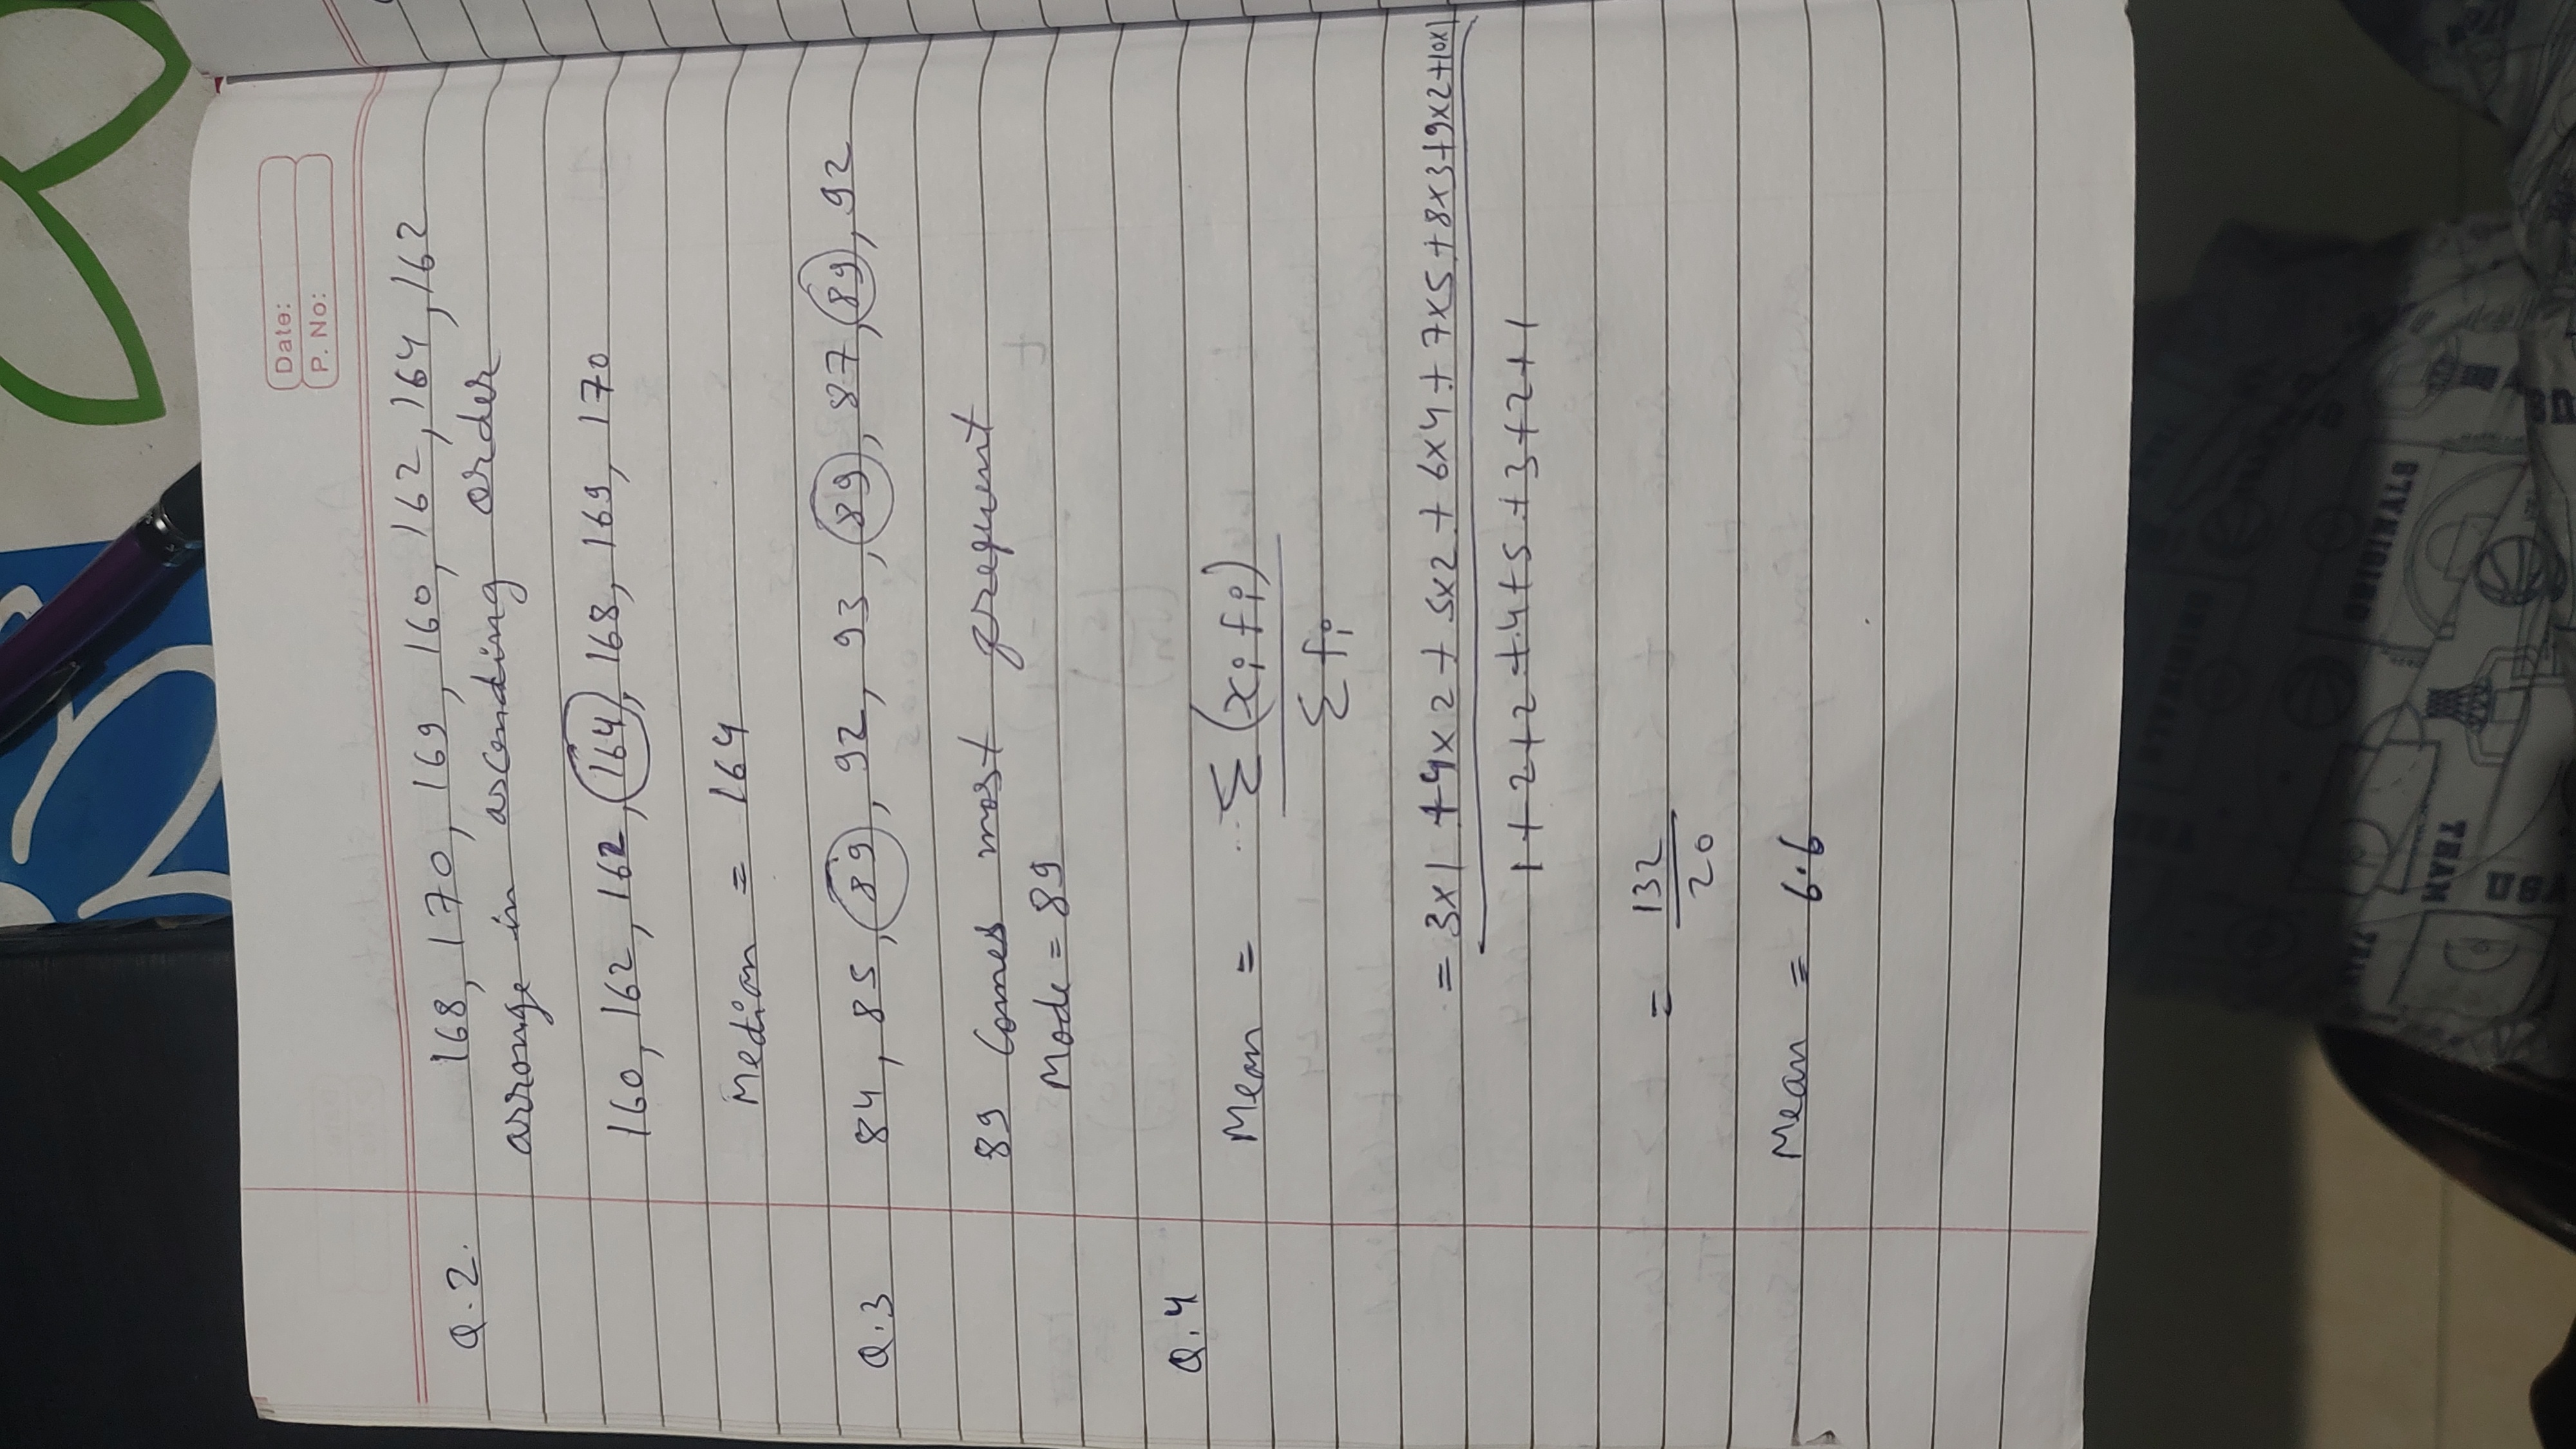 Date:
P. No:
Q.2. 168, 170, 169, 160, 162, 164, 162
arrange in ascending order
160, 162, 162, 164, 168, 169, 170
Median = 164
Q.3 84, 85, 89, 92, 93, 89, 87, 89, 92
89 Comes most frequent
Mode = 89
Q.4
Mean = Σ(xi fi)
Σ fi
= 3x1 + 4x2 + 5x2 + 6x4 + 7x5 + 8x3 + 9x2 + 10x1
1 + 2 + 2 + 4 + 5 + 3 + 2 + 1
= 132
20
Mean = 6.6
ORIGINALS
ORIGINALS
TEAM